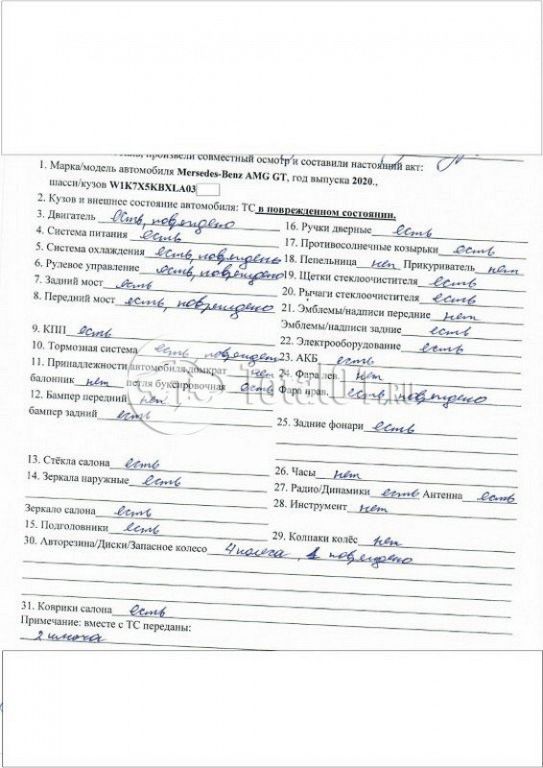 произвели совместный осмотр и составили настоящий акт:
1. Марка/модель автомобиля Mersedes-Benz AMG GT, год выпуска 2020.,
шасси/кузов W1K7X5KBXLA03
2. Кузов и внешнее состояние автомобиля: ТС в поврежденном состоянии.
3. Двигатель есть, повреждено
4. Система питания есть
5. Система охлаждения есть, повреждено
6. Рулевое управление есть, повреждено
7. Задний мост есть
8. Передний мост есть, повреждено
9. КПП есть
10. Тормозная система есть, поврежден
11. Принадлежности автомобиля домкрат нет
балонник нет петля буксировочная есть
12. Бампер передний нет
бампер задний есть
13. Стёкла салона есть
14. Зеркала наружные есть
Зеркало салона есть
15. Подголовники есть
16. Ручки дверные есть
17. Противосолнечные козырьки есть
18. Пепельница нет Прикуриватель нет
19. Щетки стеклоочистителя есть
20. Рычаги стеклоочистителя есть
21. Эмблемы/надписи передние нет
Эмблемы/надписи задние есть
22. Электрооборудование есть
23. АКБ есть
24. Фара лев. нет
Фара прав. есть, повреждено
25. Задние фонари есть
26. Часы нет
27. Радио/Динамики есть Антенна есть
28. Инструмент нет
29. Колпаки колёс нет
30. Авторезина/Диски/Запасное колесо 4 колеса, повреждено
31. Коврики салона есть
Примечание: вместе с ТС переданы:
2 ключа